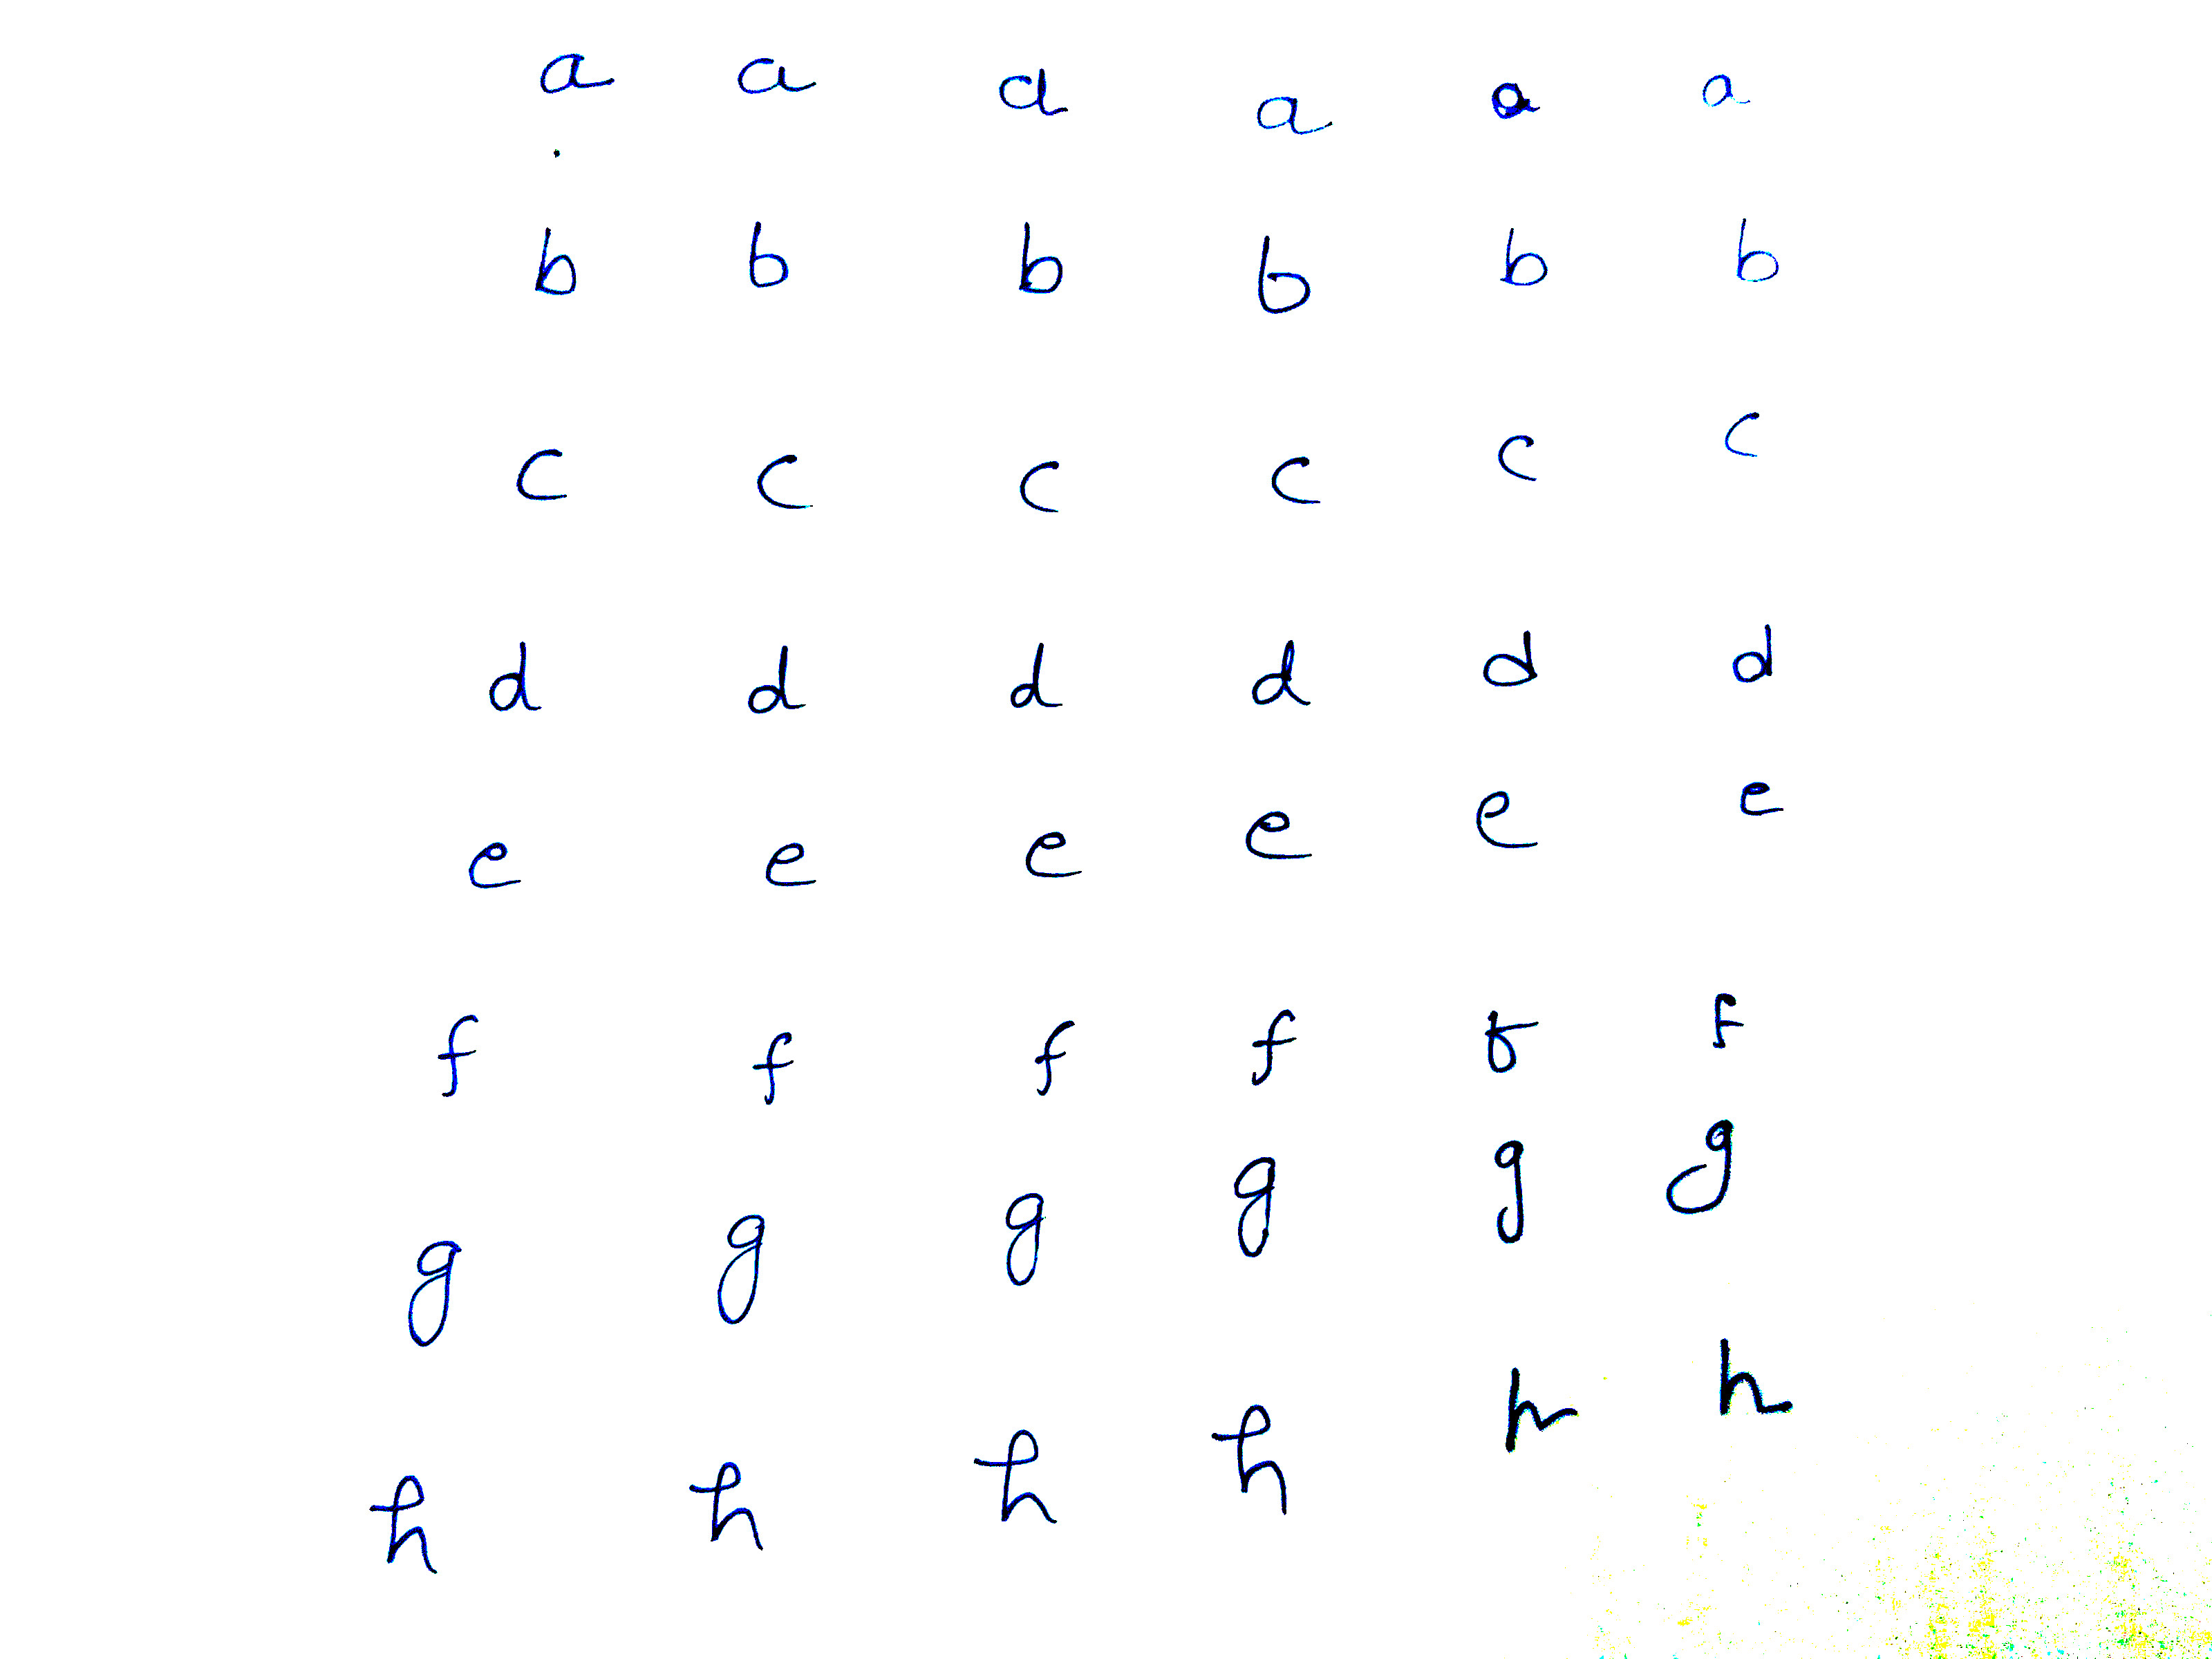 a a a a a a
b b b b b b
c c c c c c
d d d d d d
e e e e e e
f f f f f f
g g g g g g
h h h h h h